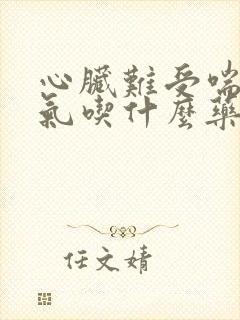 心臟難受喘
氣喫什麼藥
任文婧